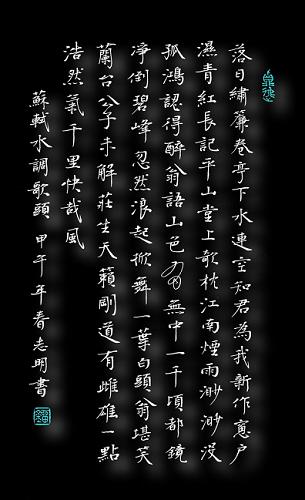 落日繡簾卷亭下水連空知君為我新作窻戶
濕青紅長記平山堂上欹枕江南煙雨渺渺沒
孤鴻認得醉翁語山色有無中一千頃都鏡
淨倒碧峰忽然浪起掀舞一葉白頭翁堪笑
蘭台公子未解莊生天籟剛道有雌雄一點
浩然氣千里快哉風
蘇軾水調歌頭 甲午年春志明書